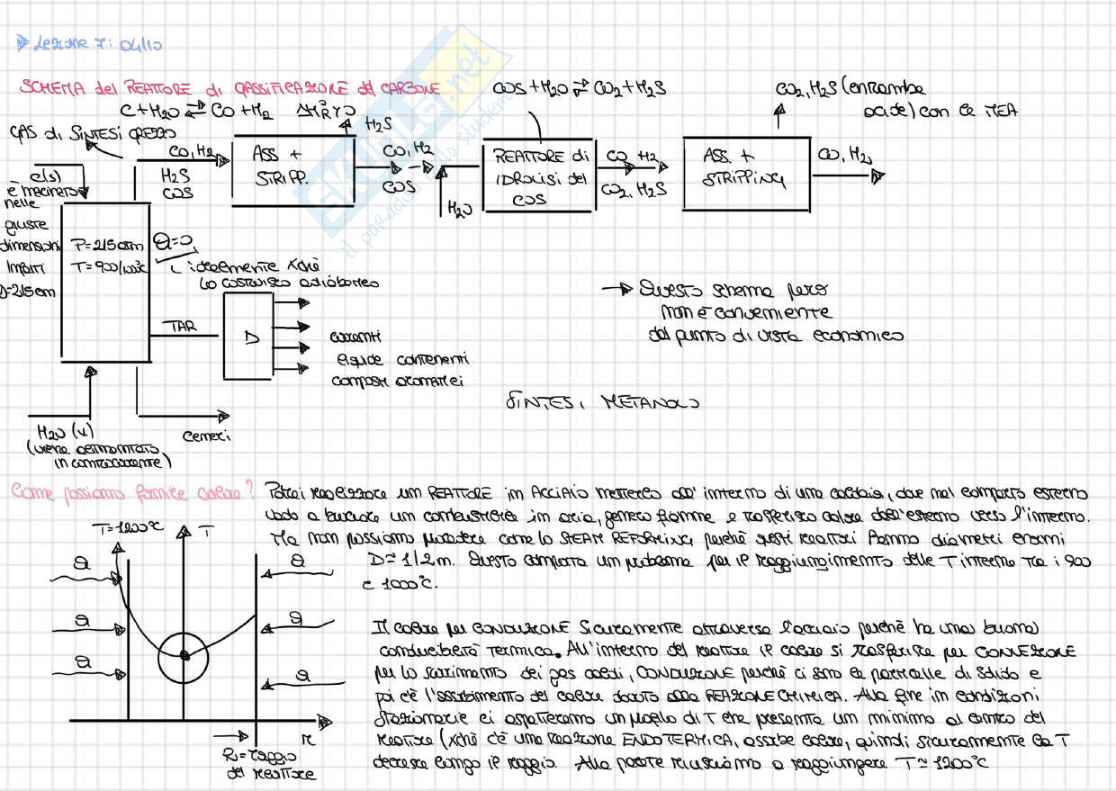 Lezione 7: 04/10
SCHEMA del REATTORE di GASSIFICAZIONE del CARBONE
COS + H2O ⇄ CO2 + H2S
CO2, H2S (entrambe
acide) con le MEA
C + H2O ⇄ CO + H2 ΔH°R > 0
GAS di SINTESI GREZZO
H2S
CO, H2
H2S
COS
ASS +
STRIPP.
CO, H2
COS
H2O
REATTORE di
IDROLISI del
COS
CO, H2
CO2, H2S
ASS. +
STRIPPING
CO, H2
C(s)
è macinato
nelle
giuste
dimensioni
P=
T=
Q=0,
idealmente xchè
lo costruisco adiabatico
TAR
D
correnti
liquide contenenti
composti aromatici
→ Questo schema però
non è conveniente
dal punto di vista economico
SINTESI METANOLO
H2O (v)
(viene alimentato
in controcorrente)
ceneri
Come possiamo fornire calore? Potrei realizzare un REATTORE in ACCIAIO metterlo all'interno di una caldaia, dove nel comparto esterno
vado a bruciare un combustibile in aria, genero fiamme e trasferisco calore dall'esterno verso l'interno.
Ma non possiamo procedere come lo STEAM REFORMING perchè questi reattori hanno diametri enormi
D = 1/2 m. Questo comporta un problema per il raggiungimento delle T interne tra i 900
e 1000°C.
T=1200°C
T
Q
Q
Q
Q
Q
Q
r
R = raggio
del reattore
Il calore per CONDUZIONE sicuramente attraversa l'acciaio perchè ha una buona
conducibilità termica. All'interno del reattore il calore si trasferisce per CONVEZIONE
per lo scorrimento dei gas caldi, CONDUZIONE perchè ci sono le particelle di solido e
poi c'è l'assorbimento del calore dovuto alla REAZIONE CHIMICA. Alla fine in condizioni
stazionarie ci aspetteremo un profilo di T che presenta un minimo al centro del
reattore (xchè c'è una reazione ENDOTERMICA, assorbe calore, quindi sicuramente la T
decresce lungo il raggio. Alla parete riusciamo a raggiungere T ≃ 1200°C